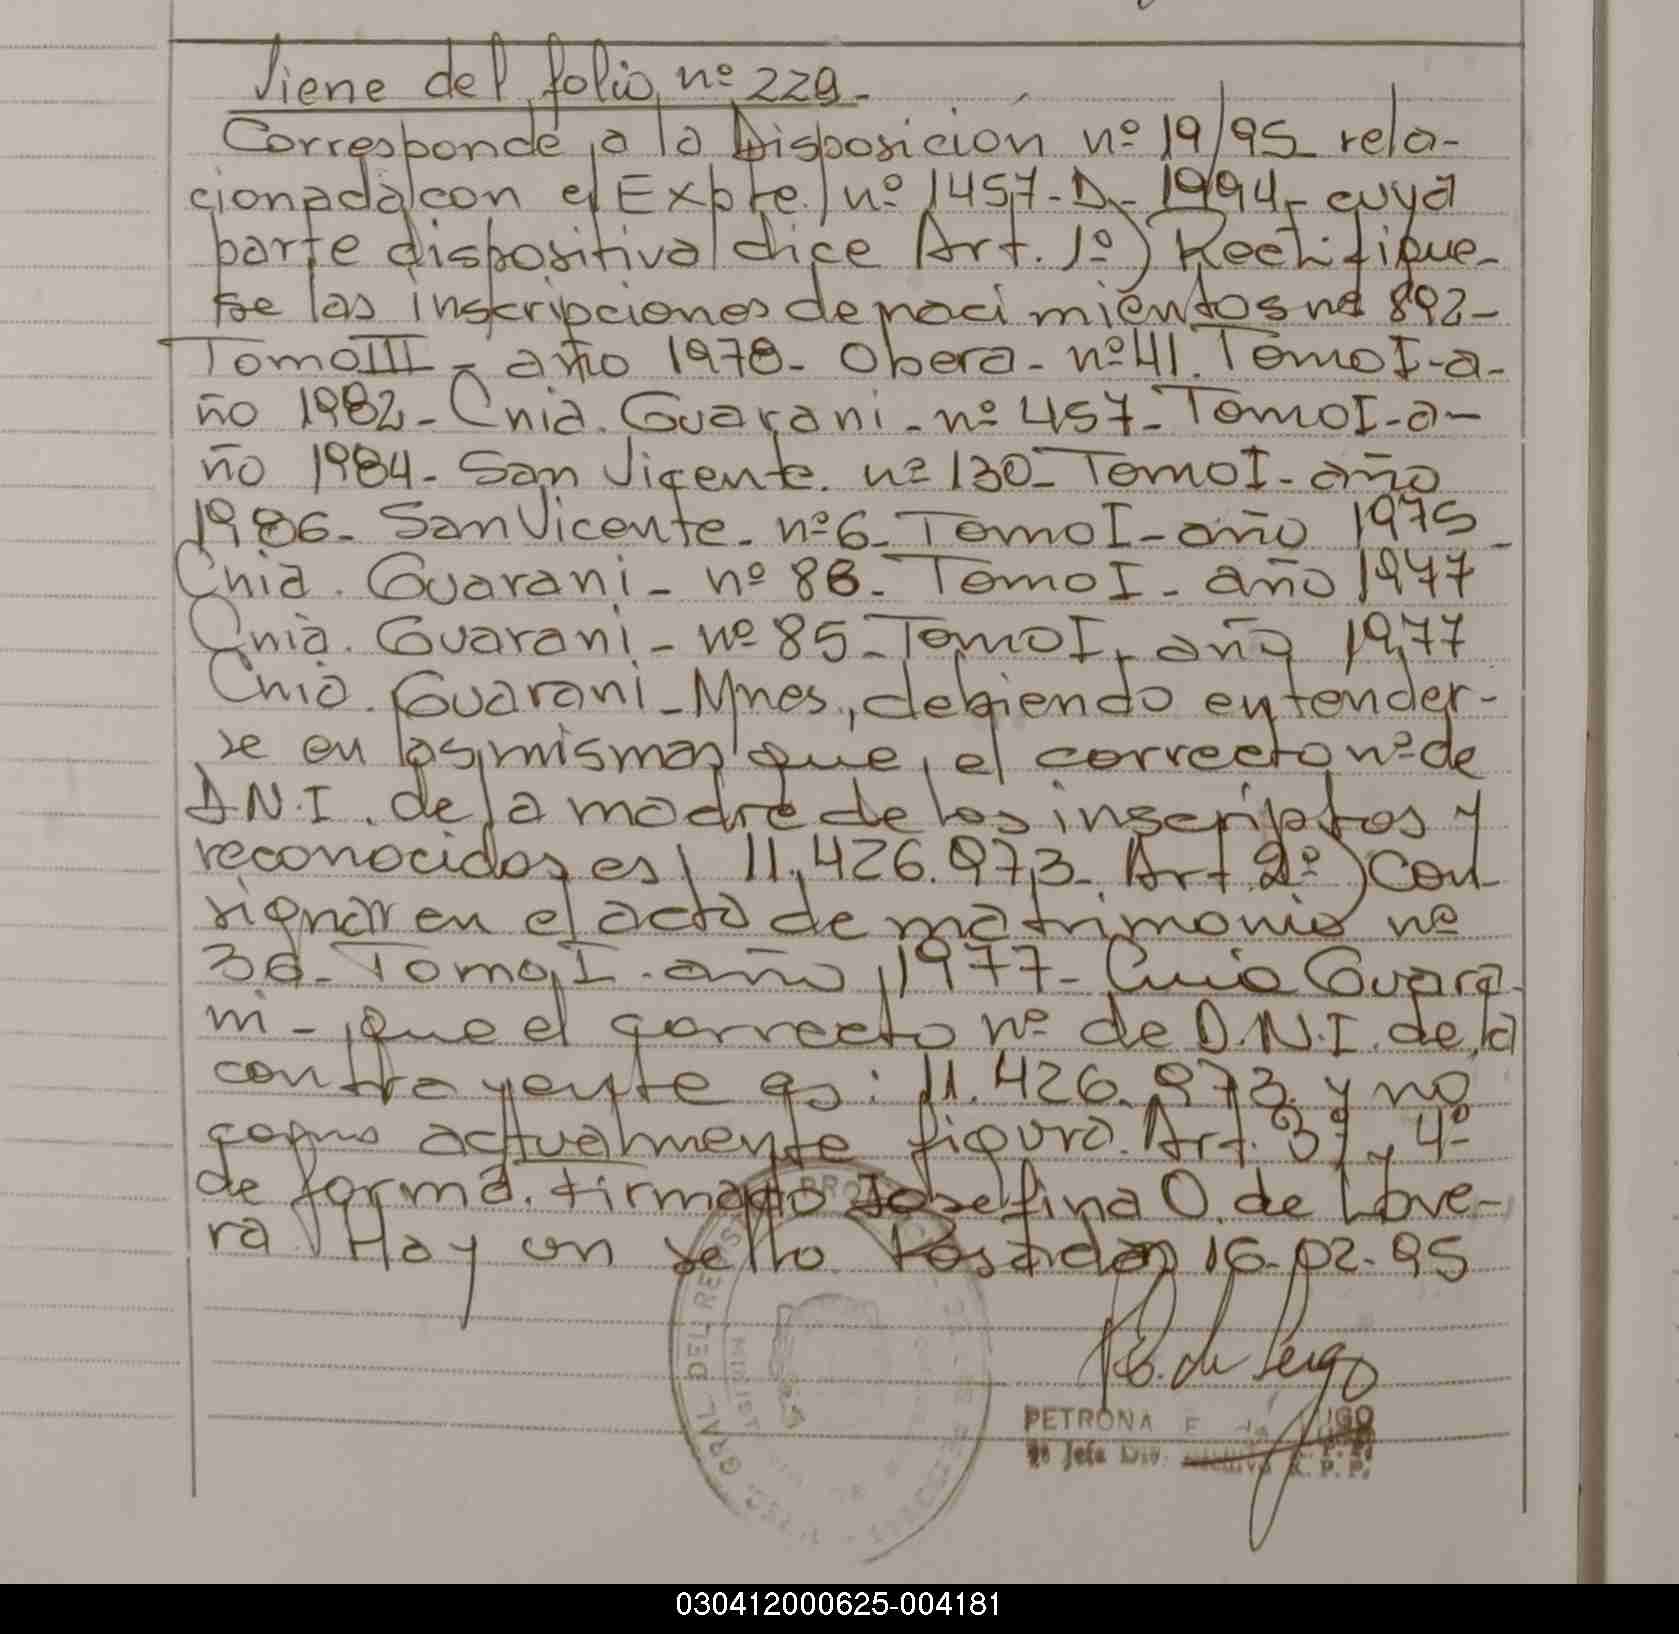 Viene del folio nº 229.
Corresponde a la Disposición nº 19/95 rela-
cionada con el Expte. nº 1457-D-1994- cuya
parte dispositiva dice Art. 1º) Rectifique-
se las inscripciones de nacimientos nº 892-
Tomo III - año 1978- Obera- nº 41. Tomo I- a-
ño 1982- Cnia. Guarani - nº 457- Tomo I- a-
ño 1984- San Vicente. nº 130- Tomo I- año
1986- San Vicente- nº 6- Tomo I- año 1975-
Cnia. Guarani - nº 86- Tomo I- año 1977
Cnia. Guarani - nº 85- Tomo I- año 1977
Cnia. Guarani - Mnes, debiendo entender-
se en las mismas que el correcto nº de
D.N.I. de la madre de los inscriptos y
reconocidos es 11.426.973- Art 2º) Con
signar en el acta de matrimonio nº
36- Tomo I- año 1977- Cnia Guara-
ni -, que el correcto nº de D.N.I. de la
contrayente es: 11.426.973 y no
como actualmente figura. Art. 3º y 4º
de forma. Firmado Josefina O. de Love-
ra Hay un sello Posadas 16-02-95
PETRONA E. de LUGO
2º Jefa Div. Archivo R.P.P.
GRAL DEL REGIST
PRO
030412000625-004181